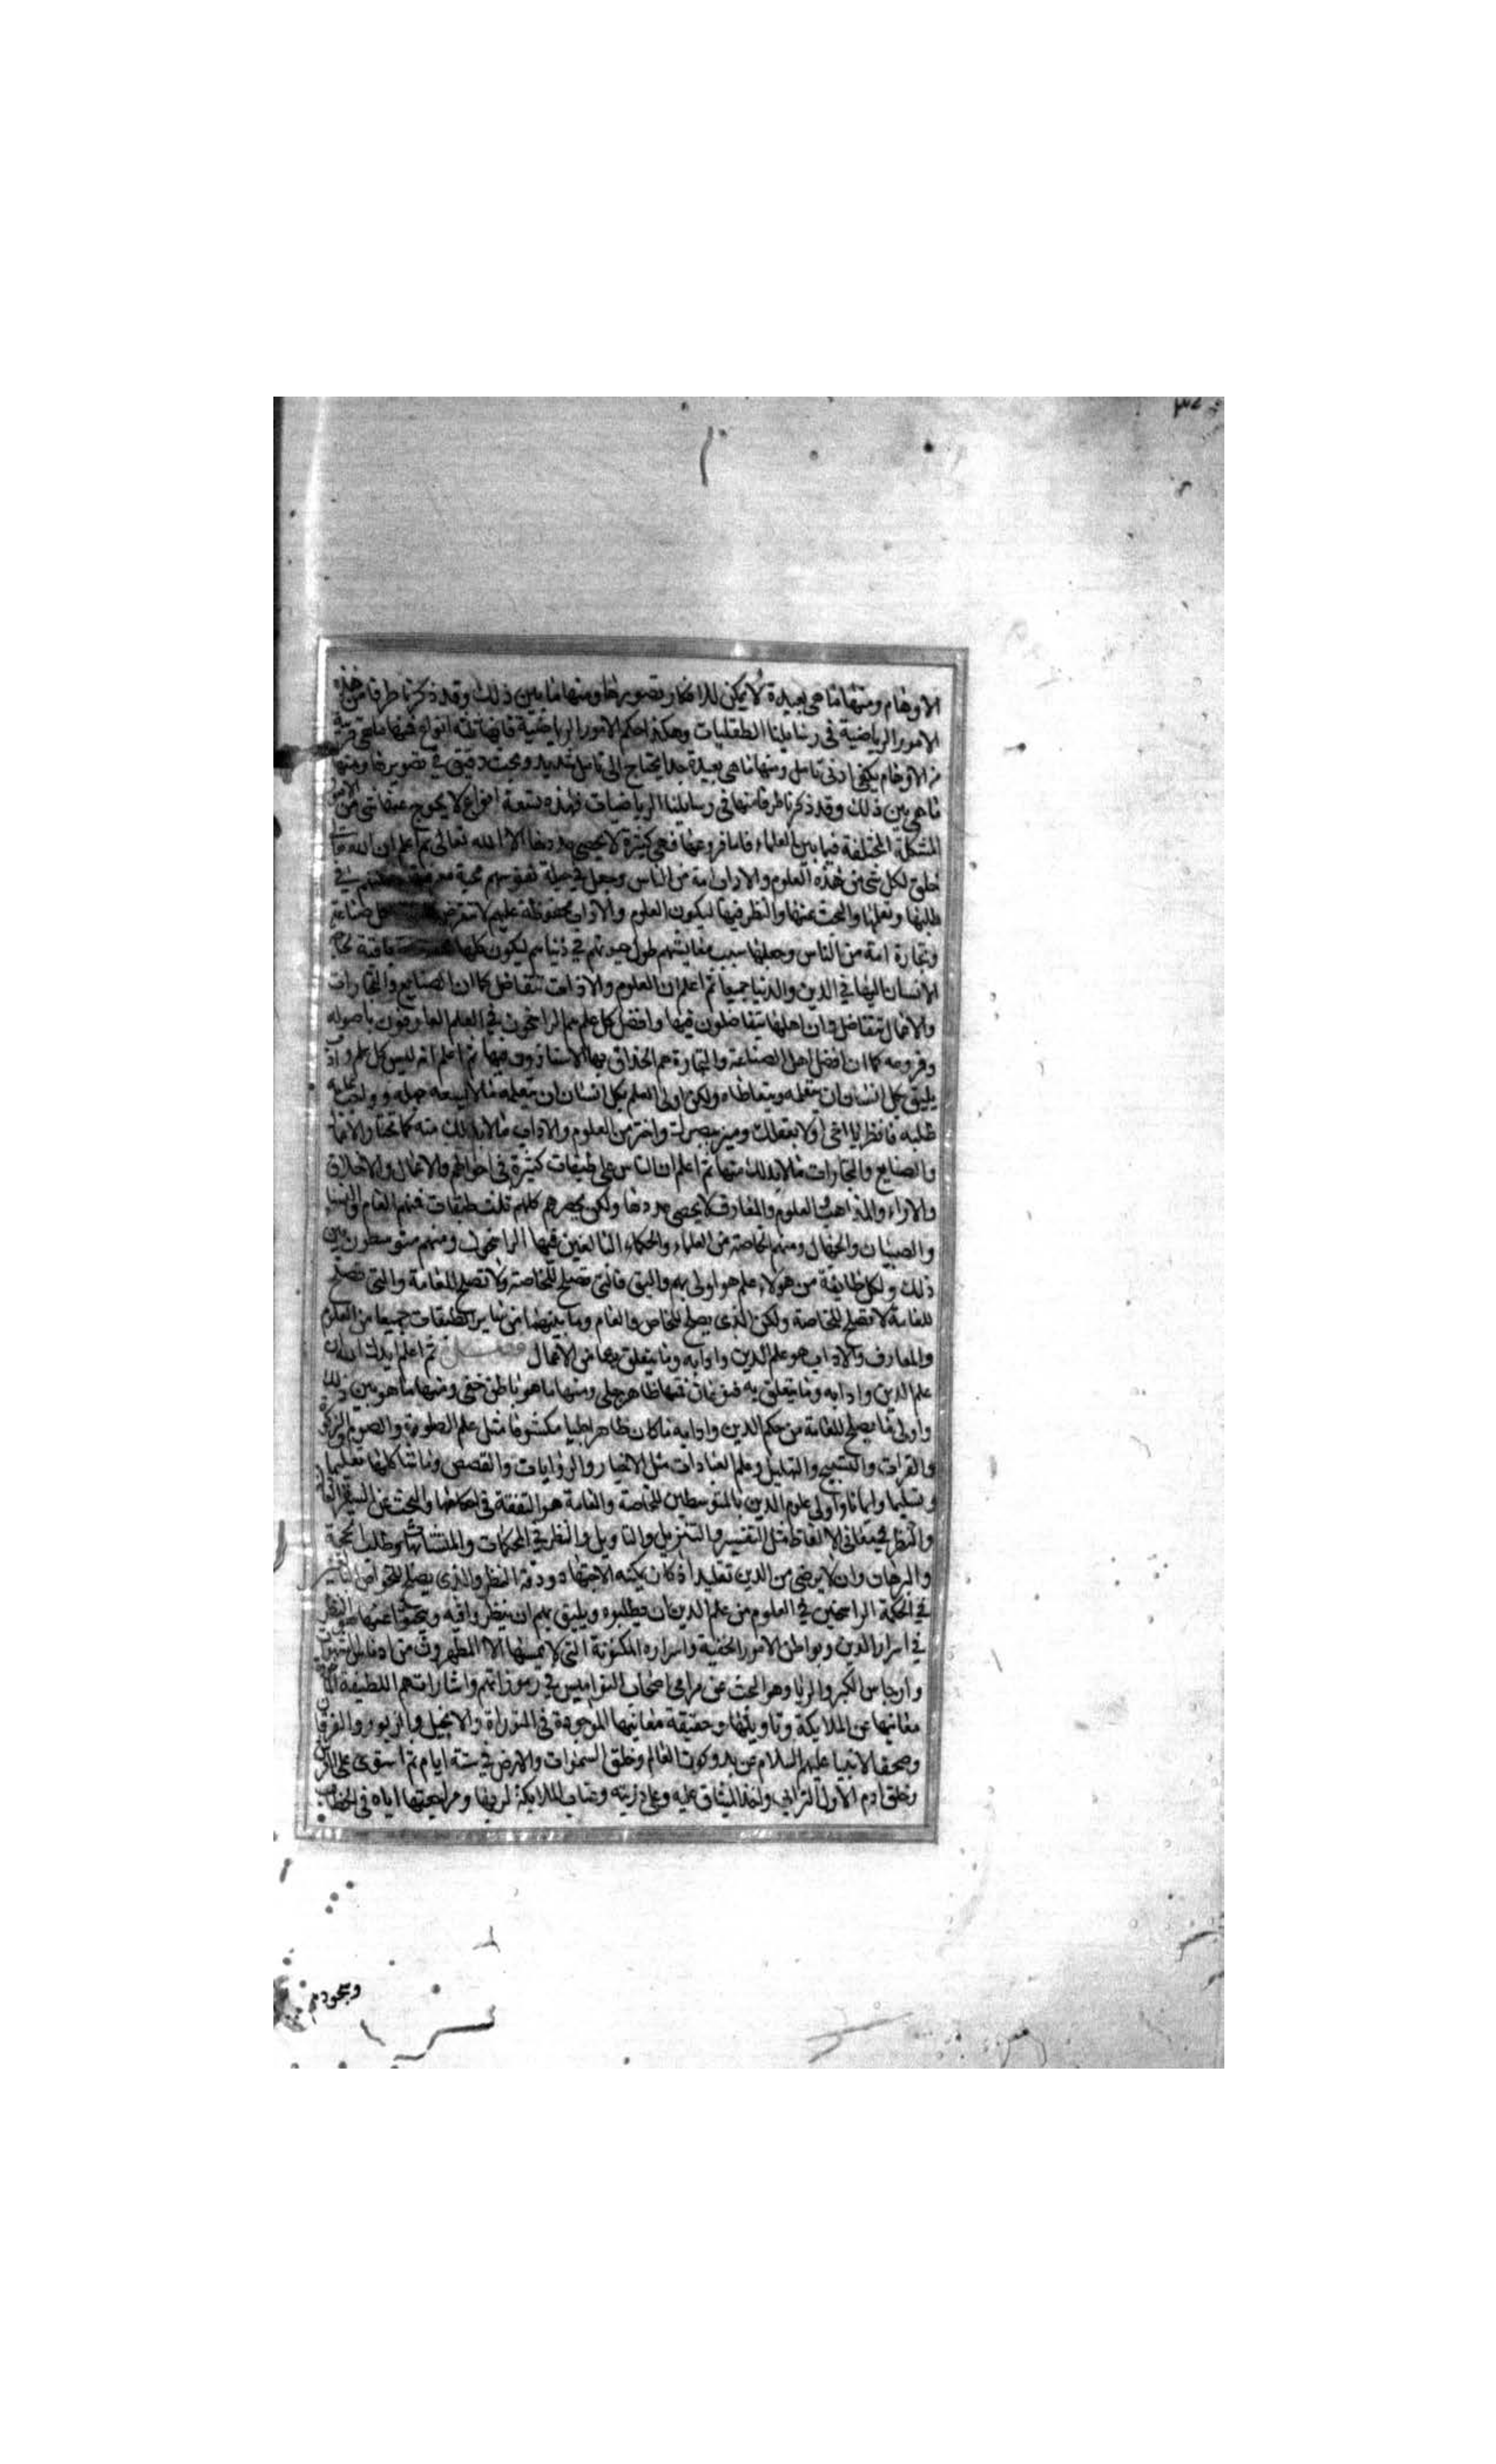 الاوهام ومنها ما هى بعيدة لا يمكن للافكار تصويرها ومنها ما بين ذلك وقد ذكرنا طرفا من هذه
الامور الرياضية فى رسايلنا العقليات وهكذا حكم الامور الرياضية فانها ثلثة انواع فمنها ما هى قريبة
من الاوهام يكفى ادنى تامل ومنها ما هى بعيدة جدا يحتاج الى تامل شديد وبحث دقيق فى تصويرها ومنها
ما هى بين ذلك وقد ذكرنا طرفا منها فى رسايلنا الرياضيات فهذه تسعة انواع لا يخرج عنها شى من الامور
المشكلة المختلفة فيما بين العلماء فاما فروعها فهى كثيرة لا يحصى عددها الا الله تعالى ثم اعلم ان الله تعا
خلق لكل شى من هذه العلوم والاداب امة من الناس وجعل فى جبلة نفوسهم محبة فى
طلبها وتعلمها والبحث عنها والنظر فيها ليكون العلوم والاداب محفوظة عليهم لا تنقرض صناعة
وتجارة امة من الناس وجعلها سبب معايشهم طول حيوتهم فى دنياهم ليكون كلها
الانسان اليها فى الدين والدنيا جميعا ثم اعلم ان العلوم والاداب تتفاضل كما ان الصنايع والتجارات
والاعمال تتفاضل وان اهلها يتفاضلون فيها وافضل كل علم هم الراسخون فى العلم العارفون باصوله
وفروعه كما ان افضل اهل الصناعة والتجارة هم الحذاق بها الاستاذون فيها ثم اعلم انه ليس كل علم وادب
يليق بكل انسان ان يتعلمه ويتعاطاه ولكن اولى العلم بكل انسان ان يتعلمه ما لا يسعه جهله وواجب عليه
طلبه فانظر يا اخى اولا بعقلك وميز ببصرك واختر من العلوم والاداب ما لا بد لك منه كما تختار الاعمال
والصنايع والتجارات ما لا بد لك منها ثم اعلم ان الناس على طبقات كثيرة فى احوالهم والاعمال والاخلاق
والاراء والمذاهب والعلوم والمعارف لا يحصى عددها ولكن يحصرهم كلهم ثلث طبقات فمنهم العام والنساء
والصبيان والجهال ومنهم الخاصة من العلماء والحكماء البالغين فيها الراسخون ومنهم متوسطون بين
ذلك ولكل طايفة من هولاء علم هو اولى بهم واليق فالتى تصلح للخاصة ولا تصلح للعامة والتى تصلح
للعامة لا تصلح للخاصة ولكن الذى يصلح للخاص والعام وما بينهما من ساير الطبقات جميعا من العلوم
والمعارف والاداب هو علم الدين وادابه وما يتعلق بها من الاعمال فصل ثم اعلم ان
علم الدين وادابه وما يتعلق به فمنها ظاهر جلى ومنها ما هو باطن خفى ومنها ما هو بين ذلك
واولى ما يصلح للعامة من حكم الدين وادابه ما كان ظاهرا جليا مكشوفا مثل علم الصلوة والصوم والزكوة
والقراءت والتسبيح والتهليل وعلم العبادات مثل الاخبار والروايات والقصص وما شاكلها تعليما
وتسليما وايمانا واولى علوم الدين بالمتوسطين للخاصة والعامة هو التفقه فى احكامها والبحث عن السيرة العادلة
والنظر فى معانى الالفاظ مثل التفسير والتنزيل والتاويل والنظر فى المحكمات والمتشابهات وطلب الحجة
والبرهان وان لا يرضى من الدين تقليدا اذ كان يمكنه الاجتهاد ودقة النظر والذى يصلح للخواص
فى الحكمة الراسخين فى العلوم من علم الدين ان يطلبوه ويليق بهم ان ينظروا فيه ويبحثوا عنها هو النظر
فى اسرار الدين وبواطن الامور الخفية واسراره المكنونة التى لا يمسها الا المطهرون من ادناس الشهوات
وارجاس الكبر والريا وهو البحث عن مرامى اصحاب النواميس فى رموزاتهم واشاراتهم اللطيفة
معانيها عن الملايكة وتاويلها وحقيقة معانيها الموجودة فى التوراة والانجيل والزبور والفرقان
وصحف الانبيا عليهم السلام عن بدو كون العالم وخلق السموات والارض فى ستة ايام ثم استوى على العرش
وخلق ادم الاول الترابى واخذ الميثاق عليه وعلى ذريته وعتاب الملايكة لربها ومراجعتها اياه فى الخطاب
وسجودهم